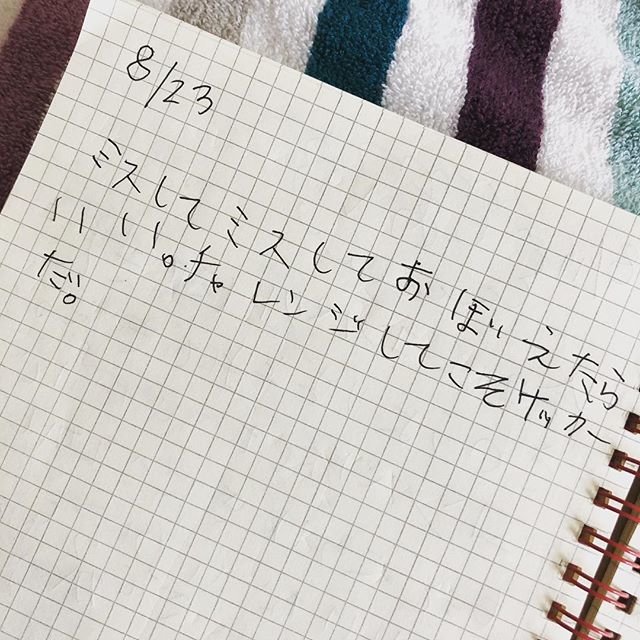 8/23
ミスしてミスしておぼいえたら
いいい。チャレンジしてこそサッカー
だ。